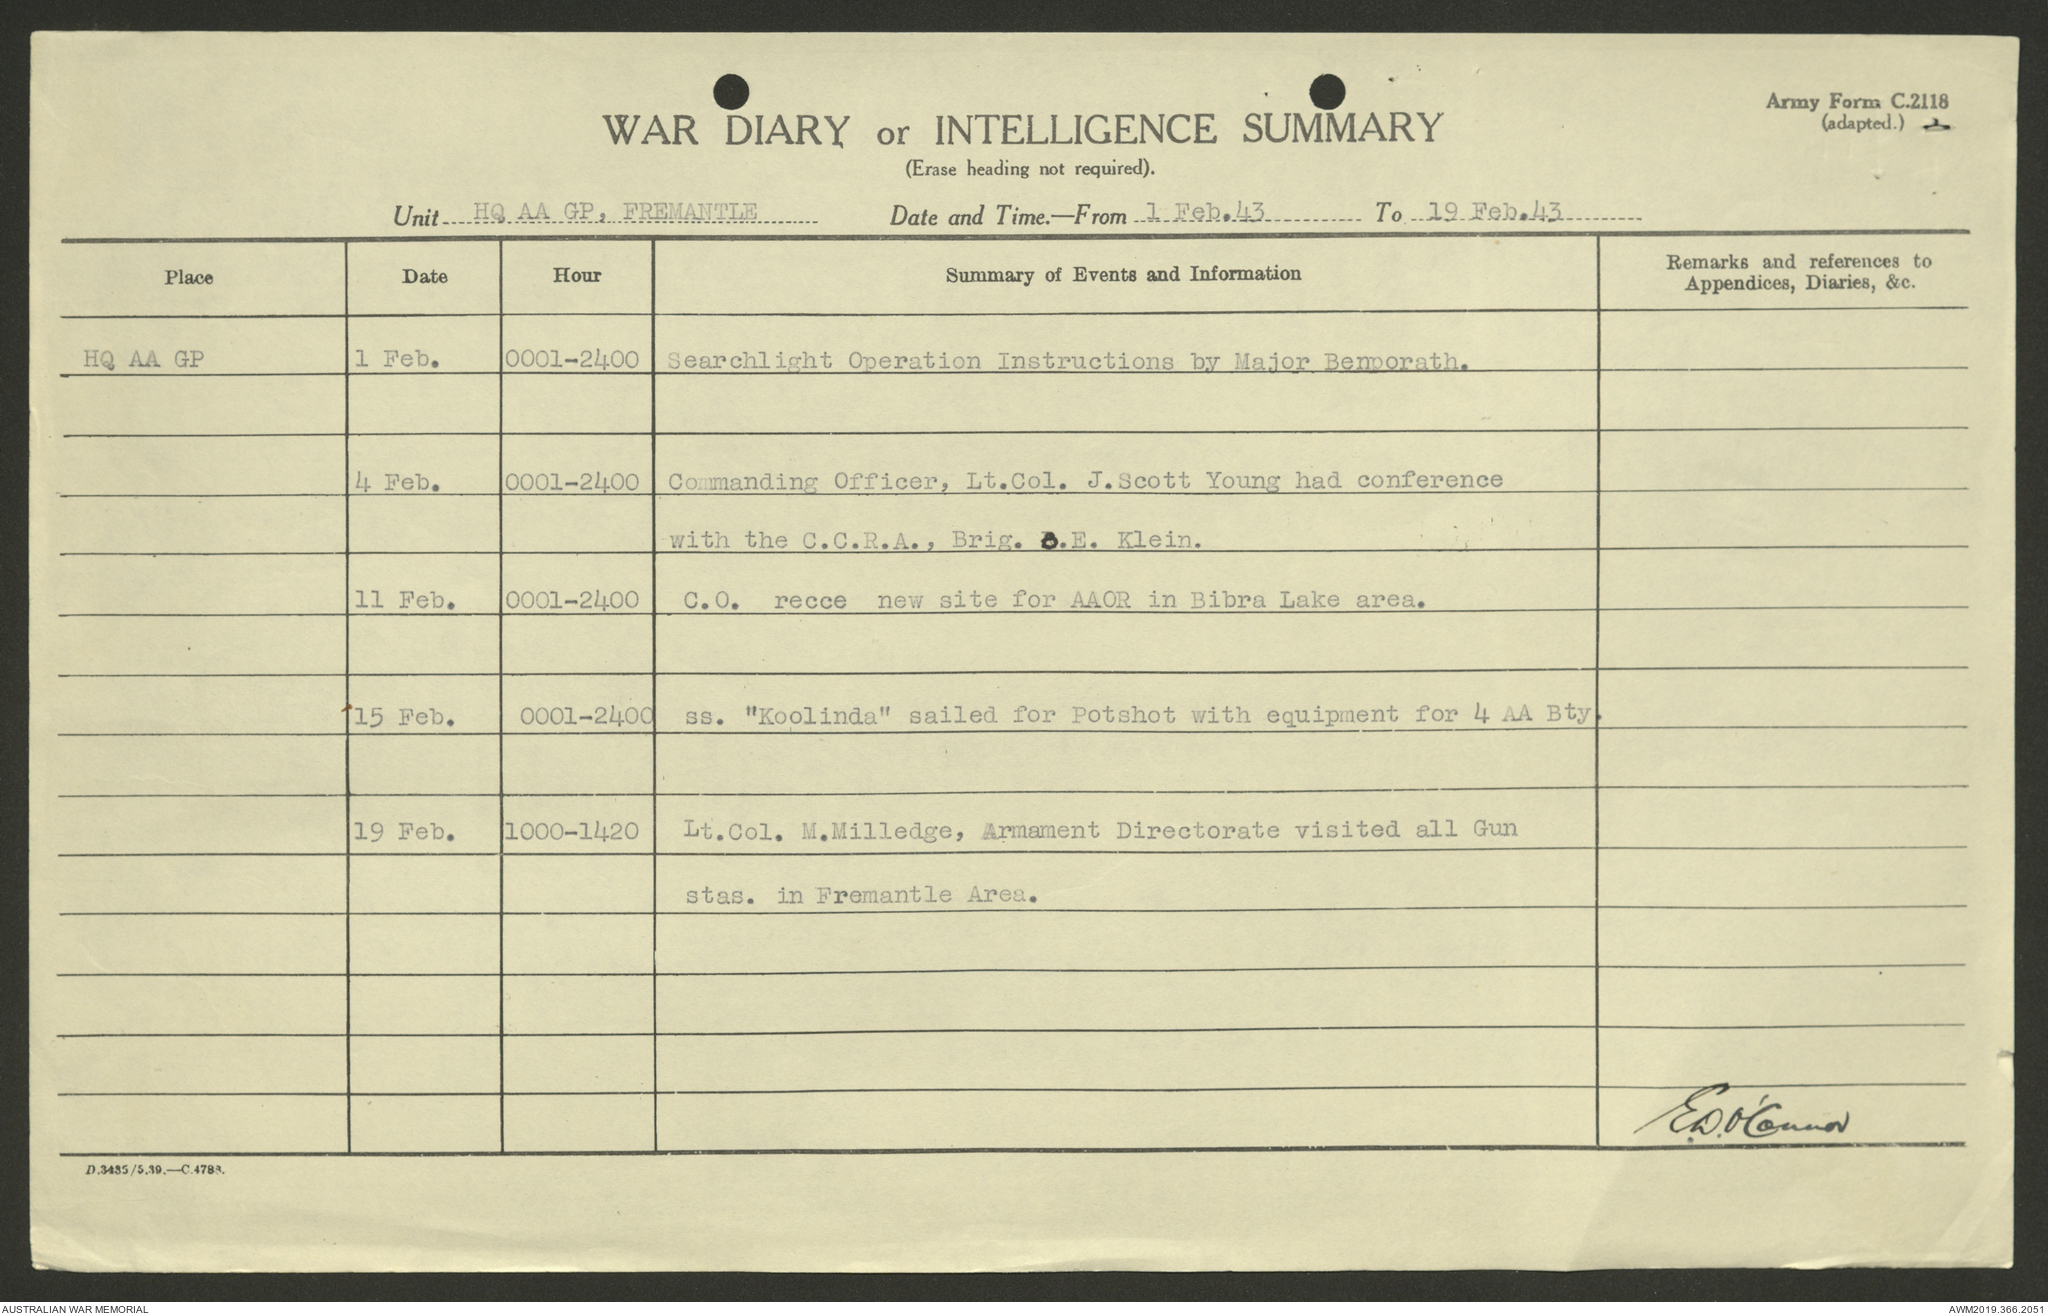 Army Form C.2118
(adapted.) 2
WAR DIARY or INTELLIGENCE SUMMARY
(Erase heading not required).
Unit HQ AA GP, FREMANTLE Date and Time.—From 1 Feb.43 To 19 Feb.43
Place Date Hour Summary of Events and Information Remarks and references to
Appendices, Diaries, &c.
HQ AA GP 1 Feb. 0001-2400 Searchlight Operation Instructions by Major Benporath.
4 Feb. 0001-2400 Commanding Officer, Lt.Col. J.Scott Young had conference
with the C.C.R.A., Brig. B.E. Klein.
11 Feb. 0001-2400 C.O. recce new site for AAOR in Bibra Lake area.
15 Feb. 0001-2400 ss. "Koolinda" sailed for Potshot with equipment for 4 AA Bty.
19 Feb. 1000-1420 Lt.Col. M.Milledge, Armament Directorate visited all Gun
stas. in Fremantle Area.
E.D.O'Connor
D.3485/5.39.—C.4788.
AUSTRALIAN WAR MEMORIAL AWM2019.366.2051